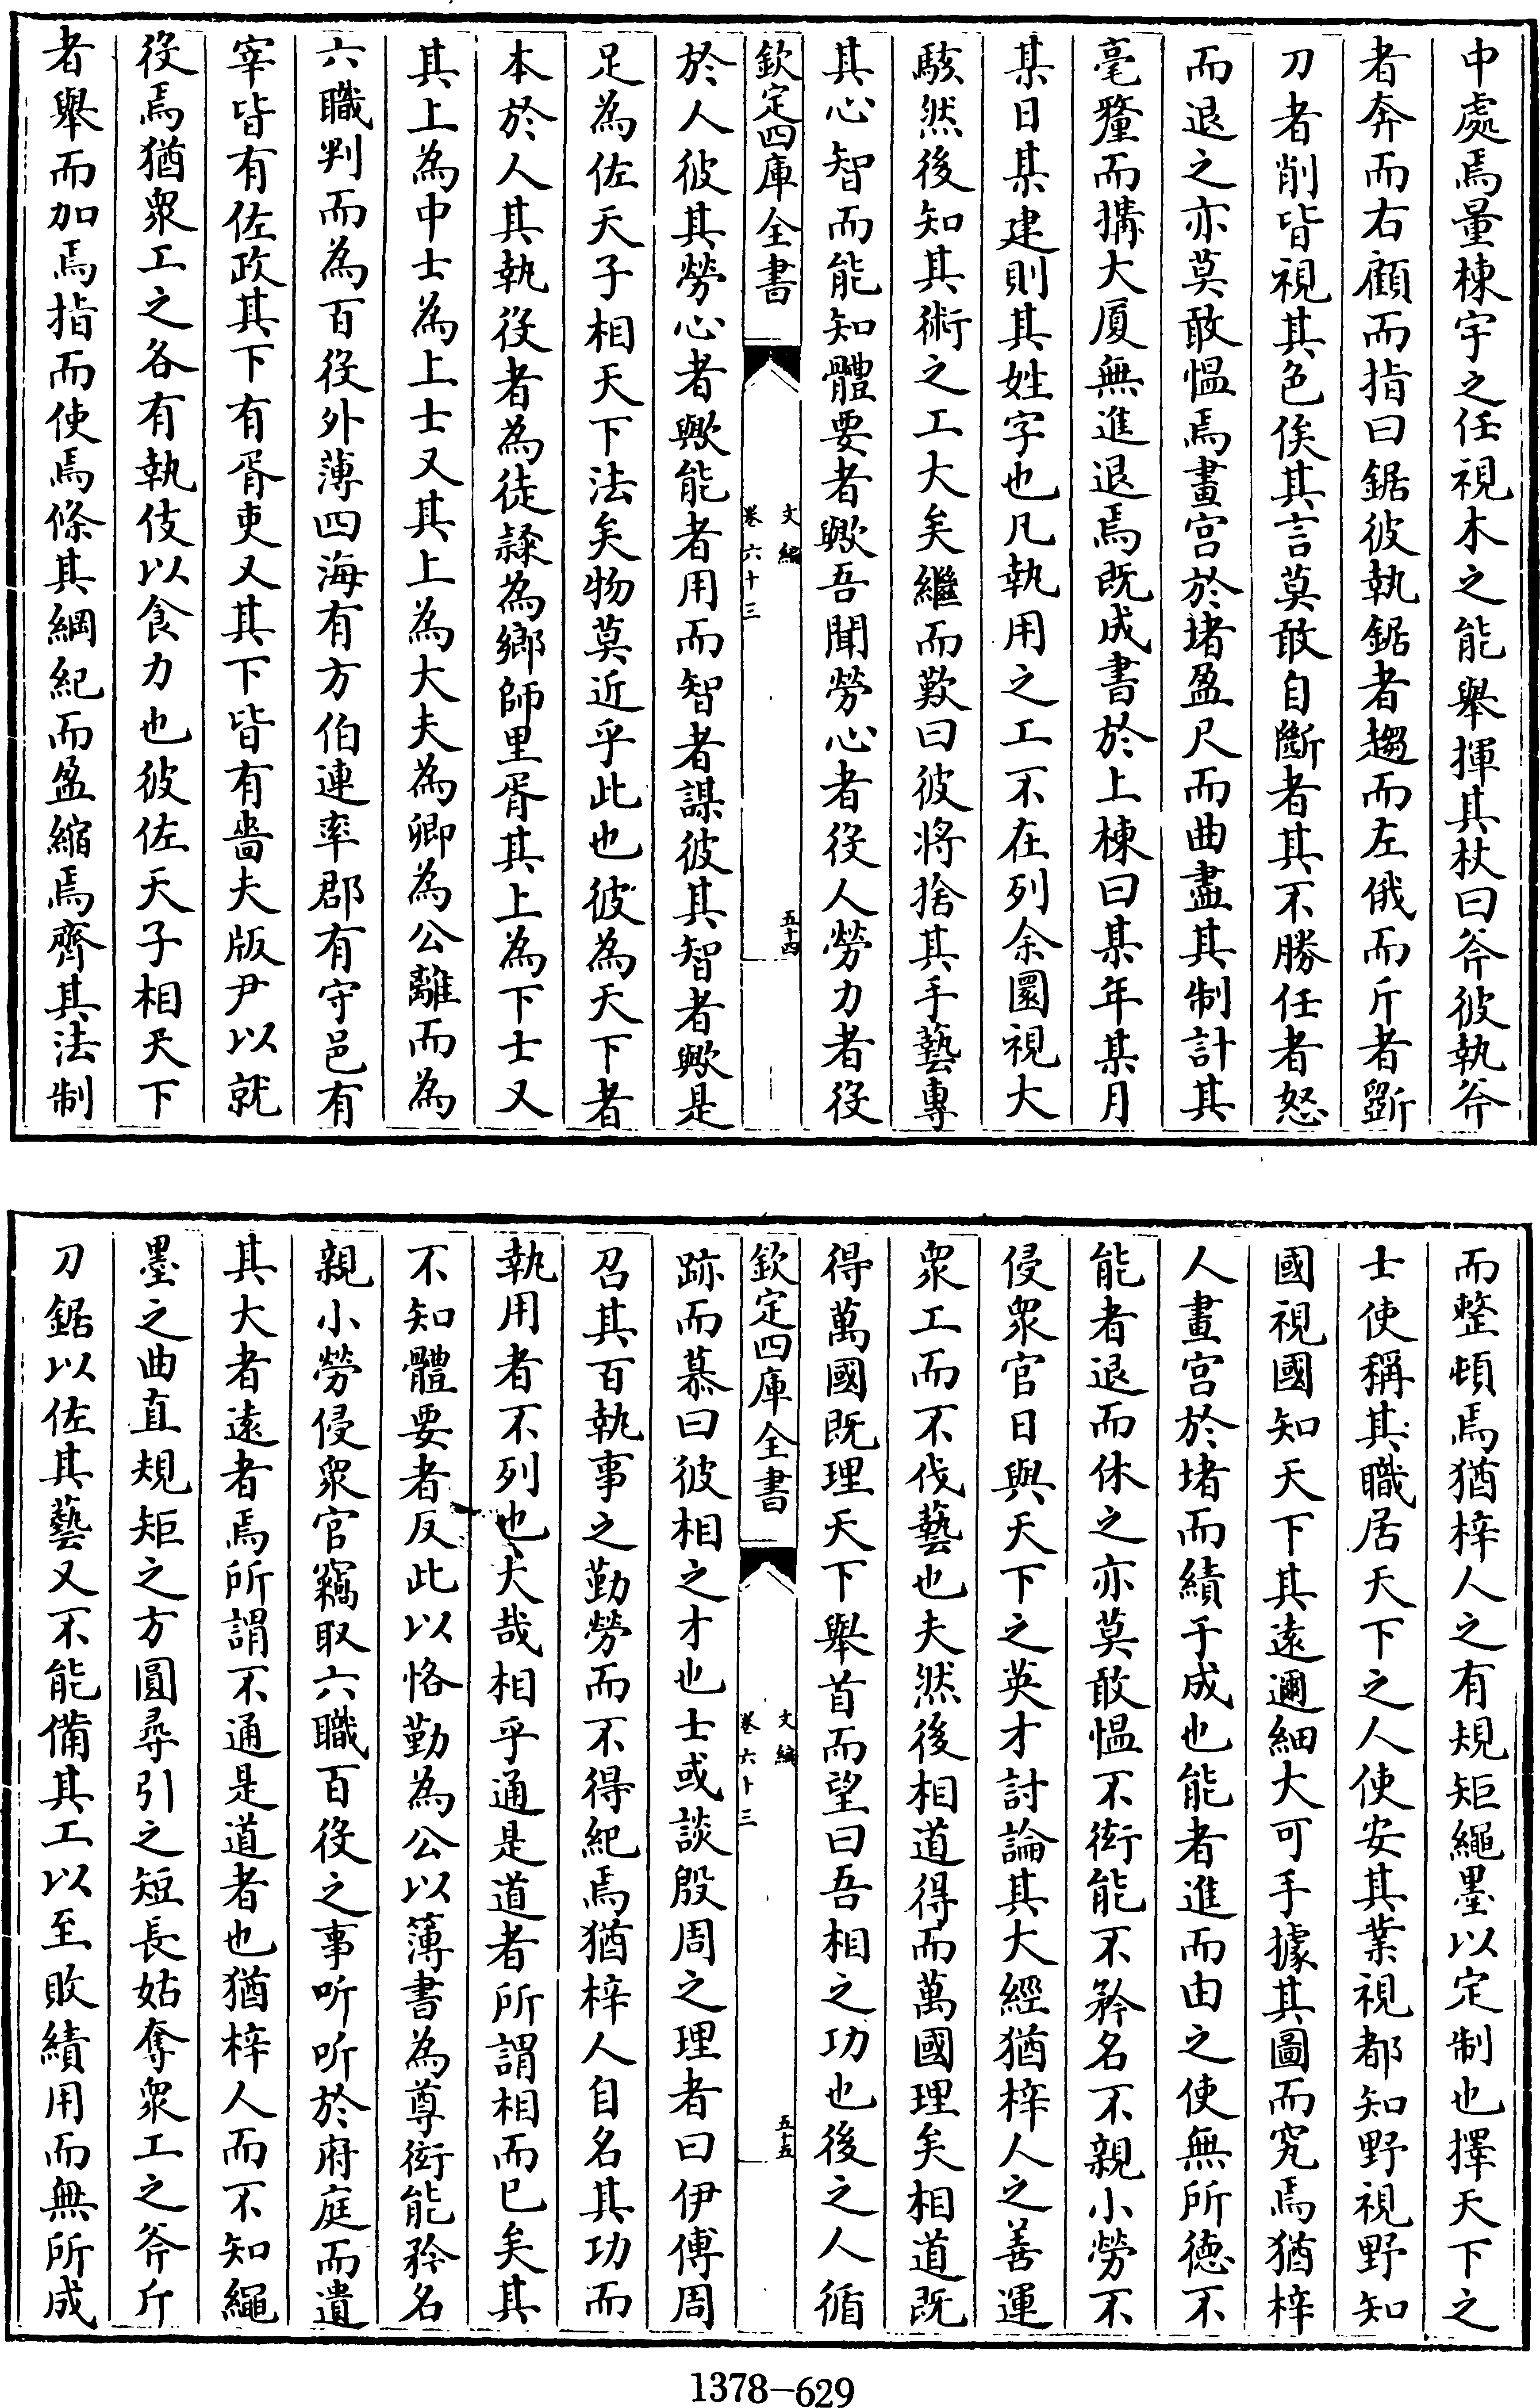 中處焉量棟宇之任視木之能舉揮其杖曰斧彼執斧
者奔而右顧而指曰鋸彼執鋸者趨而左俄而斤者斲
刀者削皆視其色俟其言莫敢自斷者其不勝任者怒
而退之亦莫敢慍焉畫宫於堵盈尺而曲盡其制計其
毫釐而搆大厦無進退焉既成書於上棟曰某年某月
某日某建則其姓字也凡執用之工不在列余圜視大
駭然後知其術之工大矣繼而歎曰彼将捨其手藝專
其心智而能知體要者歟吾聞勞心者役人勞力者役
欽定四庫全書
文編
卷六十三
五十四
於人彼其勞心者歟能者用而智者謀彼其智者歟是
足為佐天子相天下法矣物莫近乎此也彼為天下者
本於人其執役者為徒隸為鄉師里胥其上為下士又
其上為中士為上士又其上為大夫為卿為公離而為
六職判而為百役外薄四海有方伯連率郡有守邑有
宰皆有佐政其下有胥吏又其下皆有嗇夫版尹以就
役焉猶衆工之各有執伎以食力也彼佐天子相天下
者舉而加焉指而使焉條其綱紀而盈縮焉齊其法制
而整頓焉猶梓人之有規矩繩墨以定制也擇天下之
士使稱其職居天下之人使安其業視都知野視野知
國視國知天下其遠邇細大可手據其圖而究焉猶梓
人畫宫於堵而績于成也能者進而由之使無所德不
能者退而休之亦莫敢慍不衒能不矜名不親小勞不
侵衆官日與天下之英才討論其大經猶梓人之善運
衆工而不伐藝也夫然後相道得而萬國理矣相道既
得萬國既理天下舉首而望曰吾相之功也後之人循
欽定四庫全書
文編
卷六十三
五十五
跡而慕曰彼相之才也士或談殷周之理者曰伊傅周
召其百執事之勤勞而不得紀焉猶梓人自名其功而
執用者不列也大哉相乎通是道者所謂相而已矣其
不知體要者反此以恪勤為公以簿書為尊衒能矜名
親小勞侵衆官竊取六職百役之事听听於府庭而遺
其大者遠者焉所謂不通是道者也猶梓人而不知繩
墨之曲直規矩之方圓尋引之短長姑奪衆工之斧斤
刀鋸以佐其藝又不能備其工以至敗績用而無所成
1378—629